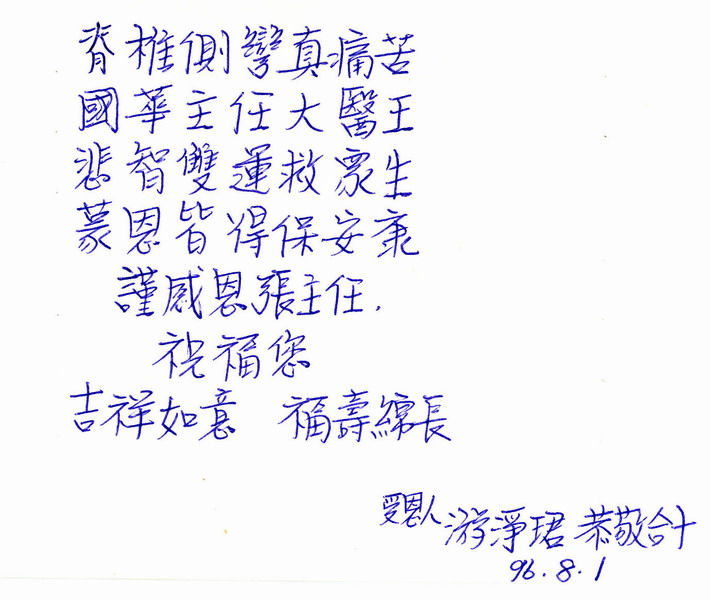 脊椎側彎真痛苦
國華主任大醫王
悲智雙運救眾生
蒙恩皆得保安康
謹感恩張主任.
祝福您
吉祥如意 福壽綿長
受恩人 游淨珺 恭敬合十
96.8.1